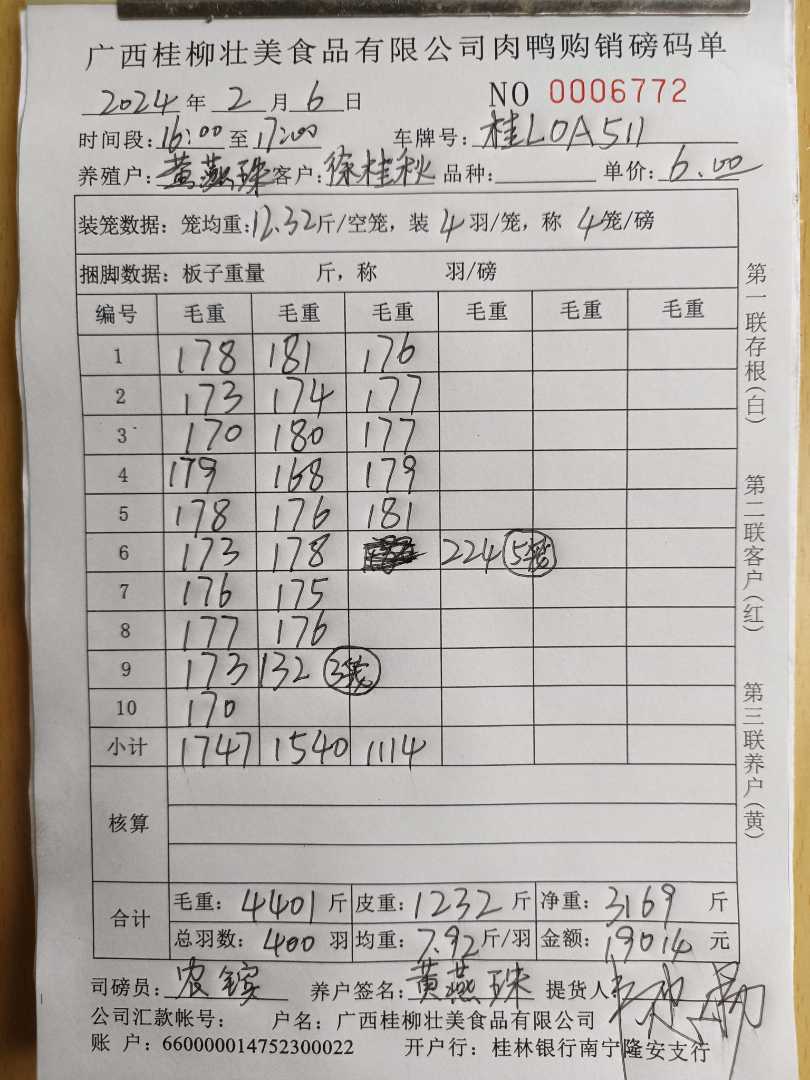 广西桂柳壮美食品有限公司肉鸭购销磅码单
2024 年 2 月 6 日 NO 0006772
时间段: 16:00 至 17:00 车牌号: 桂L0A511
养殖户: 黄燕珠 客户: 徐桂秋 品种: 单价: 6.00
装笼数据: 笼均重: 12.32 斤/空笼, 装 4 羽/笼, 称 4 笼/磅
捆脚数据: 板子重量 斤, 称 羽/磅
编号 毛重 毛重 毛重 毛重 毛重 毛重
1 178 181 176
2 173 174 177
3 170 180 177
4 179 168 179
5 178 176 181
6 173 178 224 5笼
7 176 175
8 177 176
9 173 132 3笼
10 170
小计 1747 1540 1114
核算
合计 毛重: 4401 斤 皮重: 1232 斤 净重: 3169 斤
总羽数: 400 羽 均重: 7.92 斤/羽 金额: 19014 元
司磅员: 农镔 养户签名: 黄燕珠 提货人
公司汇款帐号: 户名: 广西桂柳壮美食品有限公司
账 户: 660000014752300022 开户行: 桂林银行南宁隆安支行
第一联存根(白)
第二联客户(红)
第三联养户(黄)